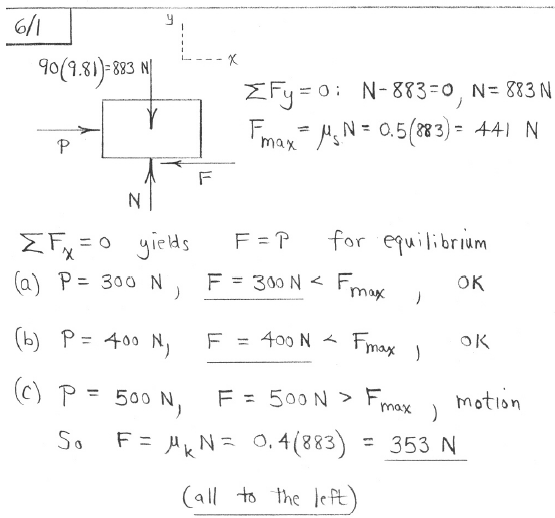 6/1
y
x
90(9.81)=883 N
P
F
N
ΣFy = 0: N-883=0, N= 883 N
Fmax = μs N = 0.5(883) = 441 N
ΣFx = 0 yields F = P for equilibrium
(a) P = 300 N, F = 300 N < Fmax, OK
(b) P = 400 N, F = 400 N < Fmax, OK
(c) P = 500 N, F = 500 N > Fmax, motion
So F = μk N = 0.4(883) = 353 N
(all to the left)